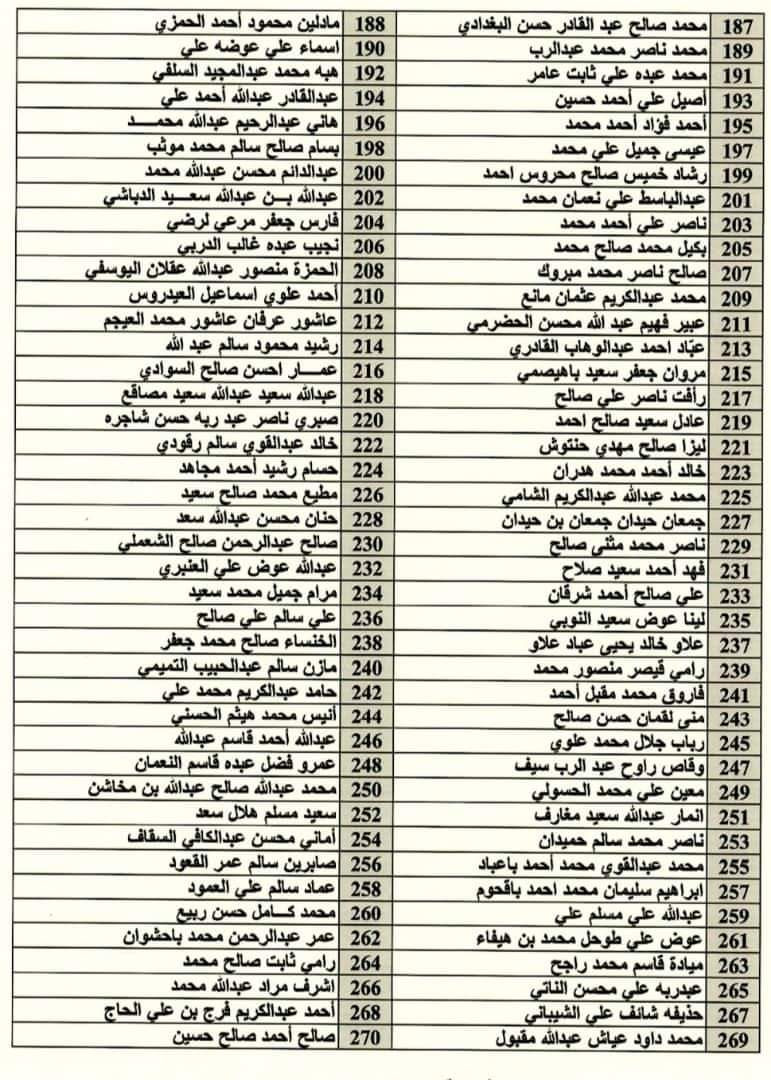 187 محمد صالح عبد القادر حسن البغدادي 188 مادلين محمود أحمد الحمزي
189 محمد ناصر محمد عبدالرب 190 اسماء علي عوضه علي
191 محمد عبده علي ثابت عامر 192 هبه محمد عبدالمجيد السلفي
193 أصيل علي أحمد حسين 194 عبدالقادر عبدالله أحمد علي
195 أحمد فؤاد أحمد محمد 196 هاني عبدالرحيم عبدالله محمـــد
197 عيسى جميل علي محمد 198 بسام صالح سالم محمد موثب
199 رشاد خميس صالح محروس احمد 200 عبدالدائم محسن عبدالله محمد
201 عبدالباسط علي نعمان محمد 202 عبدالله بــن عبدالله سعــيد الدباشي
203 ناصر علي أحمد محمد 204 فارس جعفر مرعي لرضي
205 بكيل محمد صالح محمد 206 نجيب عبده غالب الدربي
207 صالح ناصر محمد مبروك 208 الحمزة منصور عبدالله عقلان اليوسفي
209 محمد عبدالكريم عثمان مانع 210 أحمد علوي اسماعيل العيدروس
211 عبير فهيم عبد الله محسن الحضرمي 212 عاشور عرفان عاشور محمد العيجم
213 عبّاد احمد عبدالوهاب القادري 214 رشيد محمود سالم عبد الله
215 مروان جعفر سعيد باهيصمي 216 عمـــار احسن صالح السوادي
217 رأفت ناصر علي صالح 218 عبدالله سعيد عبدالله سعيد مصاقع
219 عادل سعيد صالح احمد 220 صبري ناصر عبد ربه حسن شاجره
221 ليزا صالح مهدي حنتوش 222 خالد عبدالقوي سالم رقودي
223 خالد أحمد محمد هدران 224 حسام رشيد أحمد مجاهد
225 محمد عبدالله عبدالكريم الشامي 226 مطيع محمد صالح سعيد
227 جمعان حيدان جمعان بن حيدان 228 حنان محسن عبدالله سعد
229 ناصر محمد مثنى صالح 230 صالح عبدالرحمن صالح الشعملي
231 فهد أحمد سعيد صلاح 232 عبدالله عوض علي العنبري
233 علي صالح أحمد شرقان 234 مرام جميل محمد سعيد
235 لينا عوض سعيد النوبي 236 علي سالم علي صالح
237 علاو خالد يحيى عباد علاو 238 الخنساء صالح محمد جعفر
239 رامي قيصر منصور محمد 240 مازن سالم عبدالحبيب التميمي
241 فاروق محمد مقبل أحمد 242 حامد عبدالكريم محمد علي
243 منى لقمان حسن صالح 244 أنيس محمد هيثم الحسني
245 رباب جلال محمد علوي 246 عبدالله أحمد قاسم عبدالله
247 وقاص راوح عبد الرب سيف 248 عمرو فضل عبده قاسم النعمان
249 معين علي محمد الحسولي 250 محمد عبدالله صالح عبدالله بن مخاشن
251 انمار عبدالله سعيد مغارف 252 سعيد مسلم هلال سعد
253 ناصر محمد سالم حميدان 254 أماني محسن عبدالكافي السقاف
255 محمد عبدالقوي محمد أحمد باعباد 256 صابرين سالم عمر القعود
257 ابراهيم سليمان محمد احمد باقحوم 258 عماد سالم علي العمود
259 عبدالله علي مسلم علي 260 محمد كــامل حسن ربيع
261 عوض علي طوحل محمد بن هيفاء 262 عمر عبدالرحمن محمد باحشوان
263 ميادة قاسم محمد راجح 264 رامي ثابت صالح محمد
265 عبدربه علي محسن الناتي 266 اشرف مراد عبدالله محمد
267 حذيفه شائف علي الشيباني 268 أحمد عبدالكريم فرج بن علي الحاج
269 محمد داود عياش عبدالله مقبول 270 صالح أحمد صالح حسين